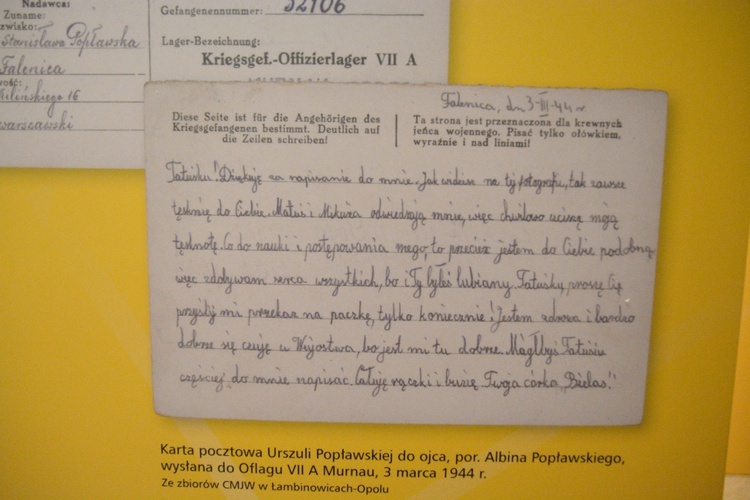 Nadawca:
Zuname:
zwisko:
Stanisława Popławska
Falenica
Kilińskiego 16
warszawski
Gefangenennummer: 52106
Lager-Bezeichnung:
Kriegsgef.-Offizierlager VII A
Falenica, dn. 3-III-44 r
Diese Seite ist für die Angehörigen des
Kriegsgefangenen bestimmt. Deutlich auf
die Zeilen schreiben!
Ta strona jest przeznaczona dla krewnych
jeńca wojennego. Pisać tylko ołówkiem,
wyraźnie i nad liniami!
Tatuśka! Dziękuję za napisanie do mnie. Jak widzisz na tej fotografii, tak zawsze
tęsknię do Ciebie. Matuś i Mikuża odwiedzają mnie, więc chwilowo uciszę moją
tęsknotę. Co do nauki i postępowania mego, to przecież jestem do Ciebie podobną
więc zdobywam serca wszystkich, bo i Ty byłeś lubiany. Tatuśku, proszę Cię
przyślij mi przekaz na paczkę, tylko koniecznie! Jestem zdrowa i bardzo
dobrze się czuję u Wujostwa, bo jest mi tu dobrze. Mógłbyś Tatusiu
częściej do mnie napisać. Całuję rączki i buzię Twoja córka "Bielas".
Karta pocztowa Urszuli Popławskiej do ojca, por. Albina Popławskiego,
wysłana do Oflagu VII A Murnau, 3 marca 1944 r.
Ze zbiorów CMJW w Łambinowicach-Opolu